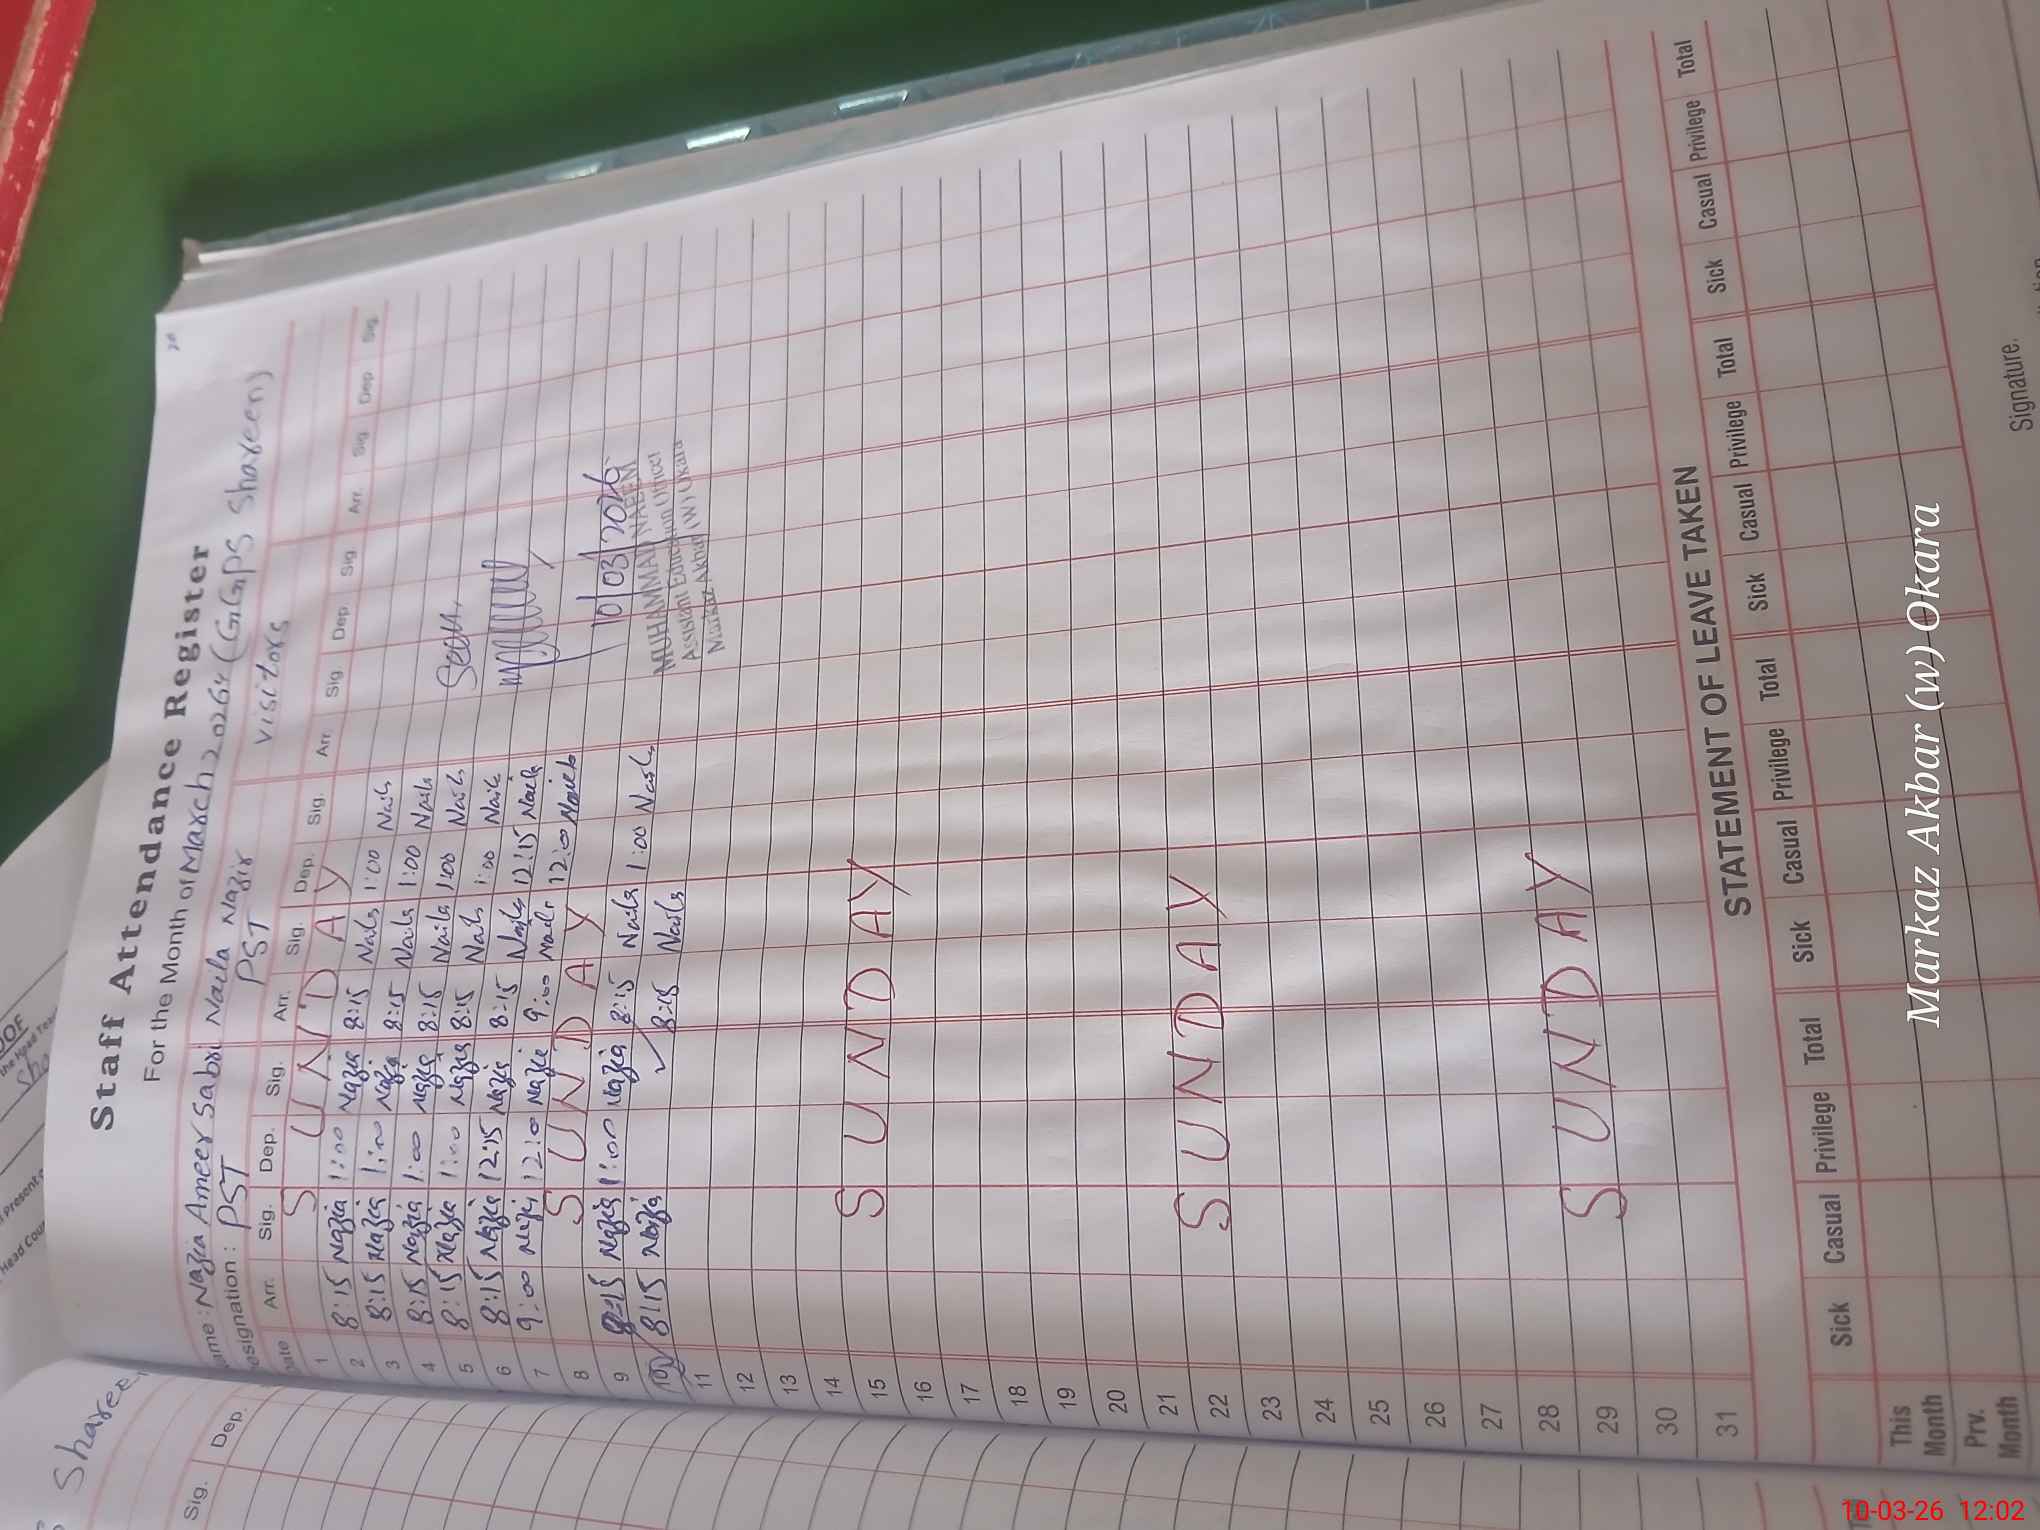 Staff Attendance Register
For the Month of March 2026 (GGPS Shareen)
Name: Nazia Ameer Sabri Naila Nazir Visitors
Designation: PST PST
Date Arr. Sig. Dep. Sig. Arr. Sig. Dep. Sig. Arr. Sig Dep Sig Arr. Sig Dep Sig.
1 SUNDAY
2 8:15 Nazia 1:00 Nazia 8:15 Naila 1:00 Naila
3 8:15 Nazia 1:00 Nazia 8:15 Naila 1:00 Naila
4 8:15 Nazia 1:00 Nazia 8:15 Naila 1:00 Naila
5 8:15 Nazia 1:00 Nazia 8:15 Naila 1:00 Naila
6 8:15 Nazia 12:15 Nazia 8:15 Naila 12:15 Naila
7 9:00 Nazia 12:00 Nazia 9:00 Naila 12:00 Naila
8 SUNDAY
9 8:15 Nazia 1:00 Nazia 8:15 Naila 1:00 Naila
10 8:15 Nazia 8:15 Naila
Seen
10/03/2026
MUHAMMAD NAEEM
Assistant Education Officer
Markaz Akbar (W) Okara
11
12
13
14
15 SUNDAY
16
17
18
19
20
21
22 SUNDAY
23
24
25
26
27
28
29 SUNDAY
30
31
STATEMENT OF LEAVE TAKEN
Sick Casual Privilege Total Sick Casual Privilege Total Sick Casual Privilege Total Sick Casual Privilege Total
This Month
Prv. Month
Signature.
Shareen
Sig. Dep.
Markaz Akbar (w) Okara
10-03-26 12:02